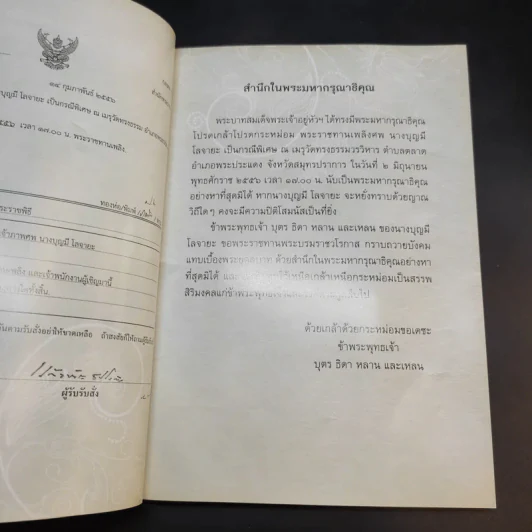 ๑๔ กุมภาพันธ์ ๒๕๕๖
บุญมี โลจายะ เป็นกรณีพิเศษ ณ เมรุวัดทรงธรรม
เวลา ๑๗.๐๐ น. พระราชทานเพลิง
เจ้าภาพศพ นางบุญมี โลจายะ
และเจ้าพนักงานผู้เชิญมานี้
ผู้รับรับสั่ง
สำนึกในพระมหากรุณาธิคุณ
พระบาทสมเด็จพระเจ้าอยู่หัวฯ ได้ทรงมีพระมหากรุณาธิคุณ
โปรดเกล้าโปรดกระหม่อม พระราชทานเพลิงศพ นางบุญมี
โลจายะ เป็นกรณีพิเศษ ณ เมรุวัดทรงธรรมวรวิหาร ตำบลตลาด
อำเภอพระประแดง จังหวัดสมุทรปราการ ในวันที่ ๒ มิถุนายน
พุทธศักราช ๒๕๕๖ เวลา ๑๗.๐๐ น. นับเป็นพระมหากรุณาธิคุณ
อย่างหาที่สุดมิได้ หากนางบุญมี โลจายะ จะหยั่งทราบด้วยญาณ
วิถีใดๆ คงจะมีความปิติโสมนัสเป็นที่ยิ่ง
ข้าพระพุทธเจ้า บุตร ธิดา หลาน และเหลน ของนางบุญมี
โลจายะ ขอพระราชทานพระบรมราชวโรกาส กราบถวายบังคม
แทบเบื้องพระยุคลบาท ด้วยสำนึกในพระมหากรุณาธิคุณอย่างหา
ที่สุดมิได้ เกล้าเหนือกระหม่อมเป็นสรรพ
สิริมงคลแก่ข้าพระพุทธเจ้า
ด้วยเกล้าด้วยกระหม่อมขอเดชะ
ข้าพระพุทธเจ้า
บุตร ธิดา หลาน และเหลน